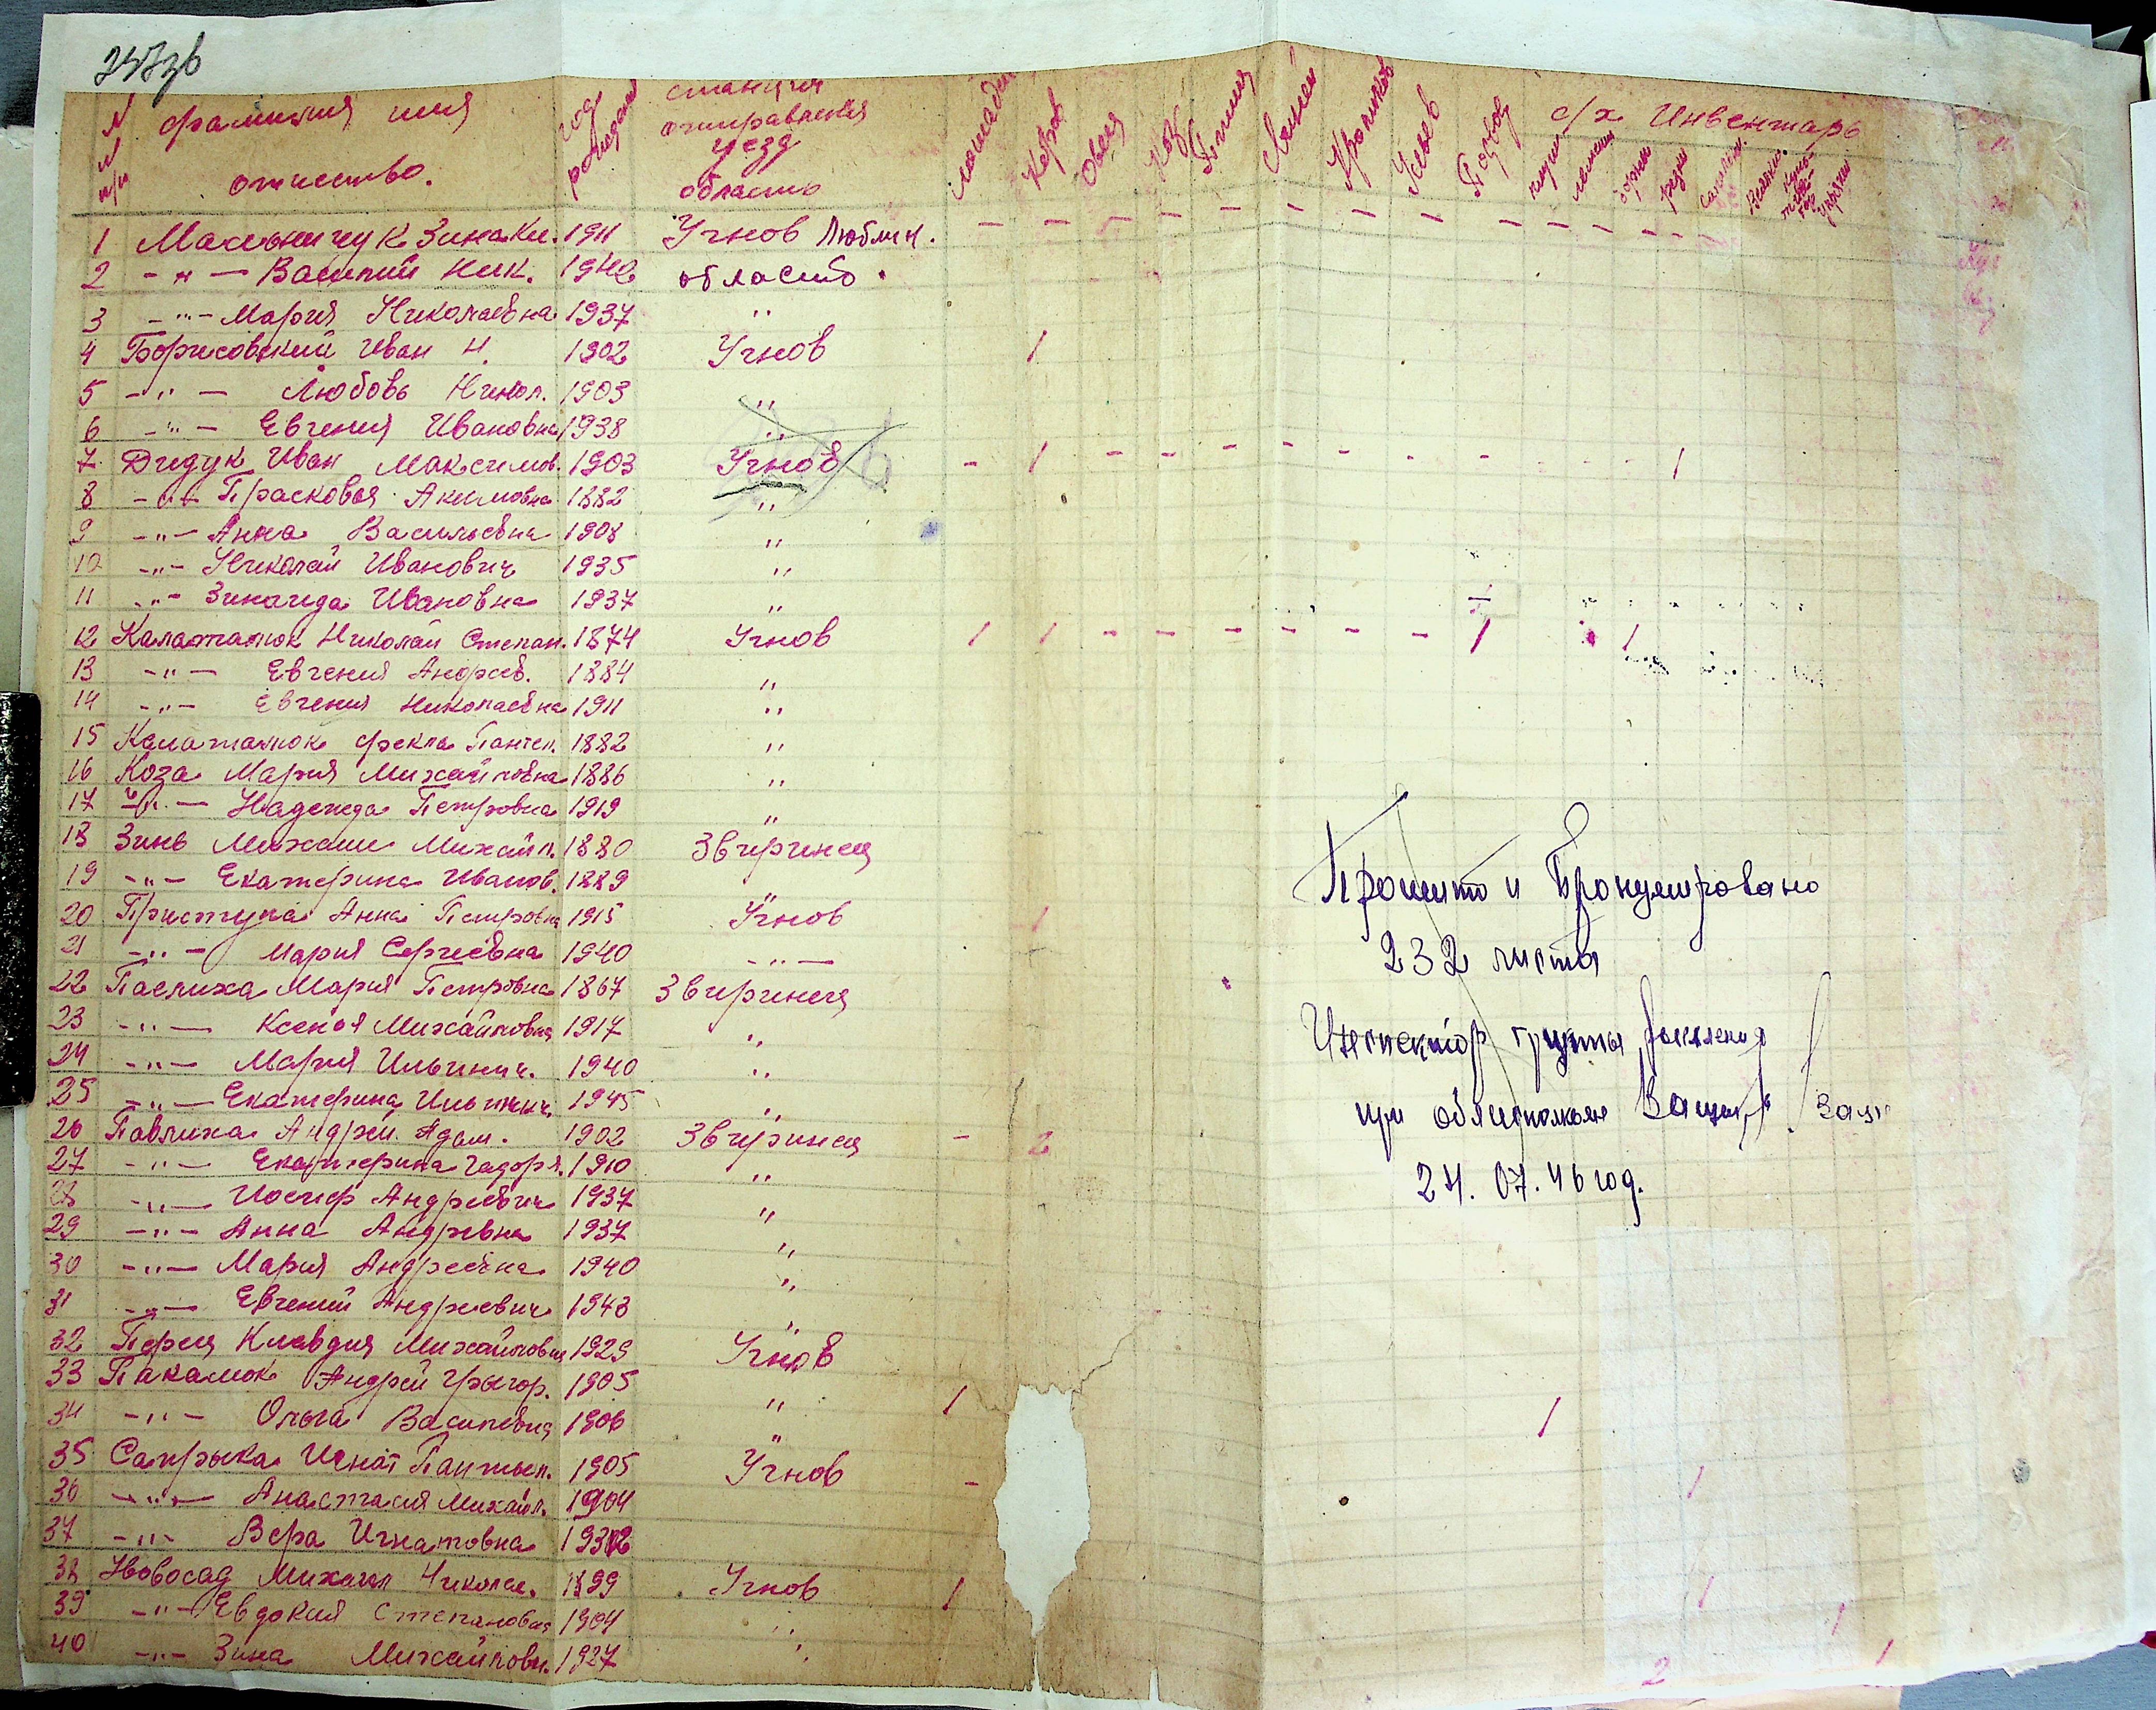 N п/п фамилия имя отчество. год рождения станция отправления уезд область лошадей Коров Овец Коз Птица Свиней Кроликов Ульев Подвод с/х Инвентарь
1 Мас Зина Ник. 1911 Угнов Люблин.
2 -"- Василий Ник. 1940 область.
3 -"- Мария Николаевна 1937 "
4 Борисовский Иван Н. 1902 Угнов 1
5 -"- Любовь Никол. 1903 "
6 -"- Евгения Ивановна 1938 "
7 Дидук Иван Максимов. 1903 Угнов - 1 - - - - - - - - - - 1
8 -"- Прасковья Акимовна 1882 "
9 -"- Анна Васильевна 1908 "
10 -"- Николай Иванович 1935 "
11 -"- Зинаида Ивановна 1937 "
12 Калаталюк Николай Степан. 1874 Угнов 1 1 - - - - - - 1 1
13 -"- Евгения Андреев. 1884 "
14 -"- Евгения Николаевна 1911 "
15 Калаталюк Фекла Пантел. 1882 "
16 Коза Мария Михайловна 1886 "
17 -"- Надежда Петровна 1919 "
18 Зинь Михаил Михайл. 1880 Звиринец
19 -"- Екатерина Иванов. 1889 "
20 Приступа Анна Петровна 1915 Угнов 1
21 -"- Мария Сергеевна 1940 -"-
22 Мария Петровна 1867 Звиринец
23 -"- Ксения Михайловна 1917 "
24 -"- Мария Ильинич. 1940 "
25 -"- Екатерина Ильинич. 1945 "
26 Павлиха Андрей Адам. 1902 Звиринец - 2
27 -"- Екатерина 1910 "
28 -"- Иосиф Андреевич 1937 "
29 -"- Анна Андревна 1937 "
30 -"- Мария Андреевна 1940 "
31 -"- Евгений Андреевич 1943 "
32 Перец Клавдия Михайловна 1929 Угнов
33 Пакалюк Андрей Грыгор. 1905 " 1 1
34 -"- Ольга Васильевна 1906 "
35 Сапрыка Игнат Пантел. 1905 Угнов - 1
36 -"- Анастасия Михайл. 1904
37 -"- Вера Игнатовна
38 Новосад Михаил Николае. 1899 Угнов 1 1
39 -"- Евдокия Степановна 1904 " 1
40 -"- Зина Михайловн. 1927 " 2 1
Прошито и Пронумировано
232 листа
Инспектор группы
при облисполкоме
24.07.46 год.